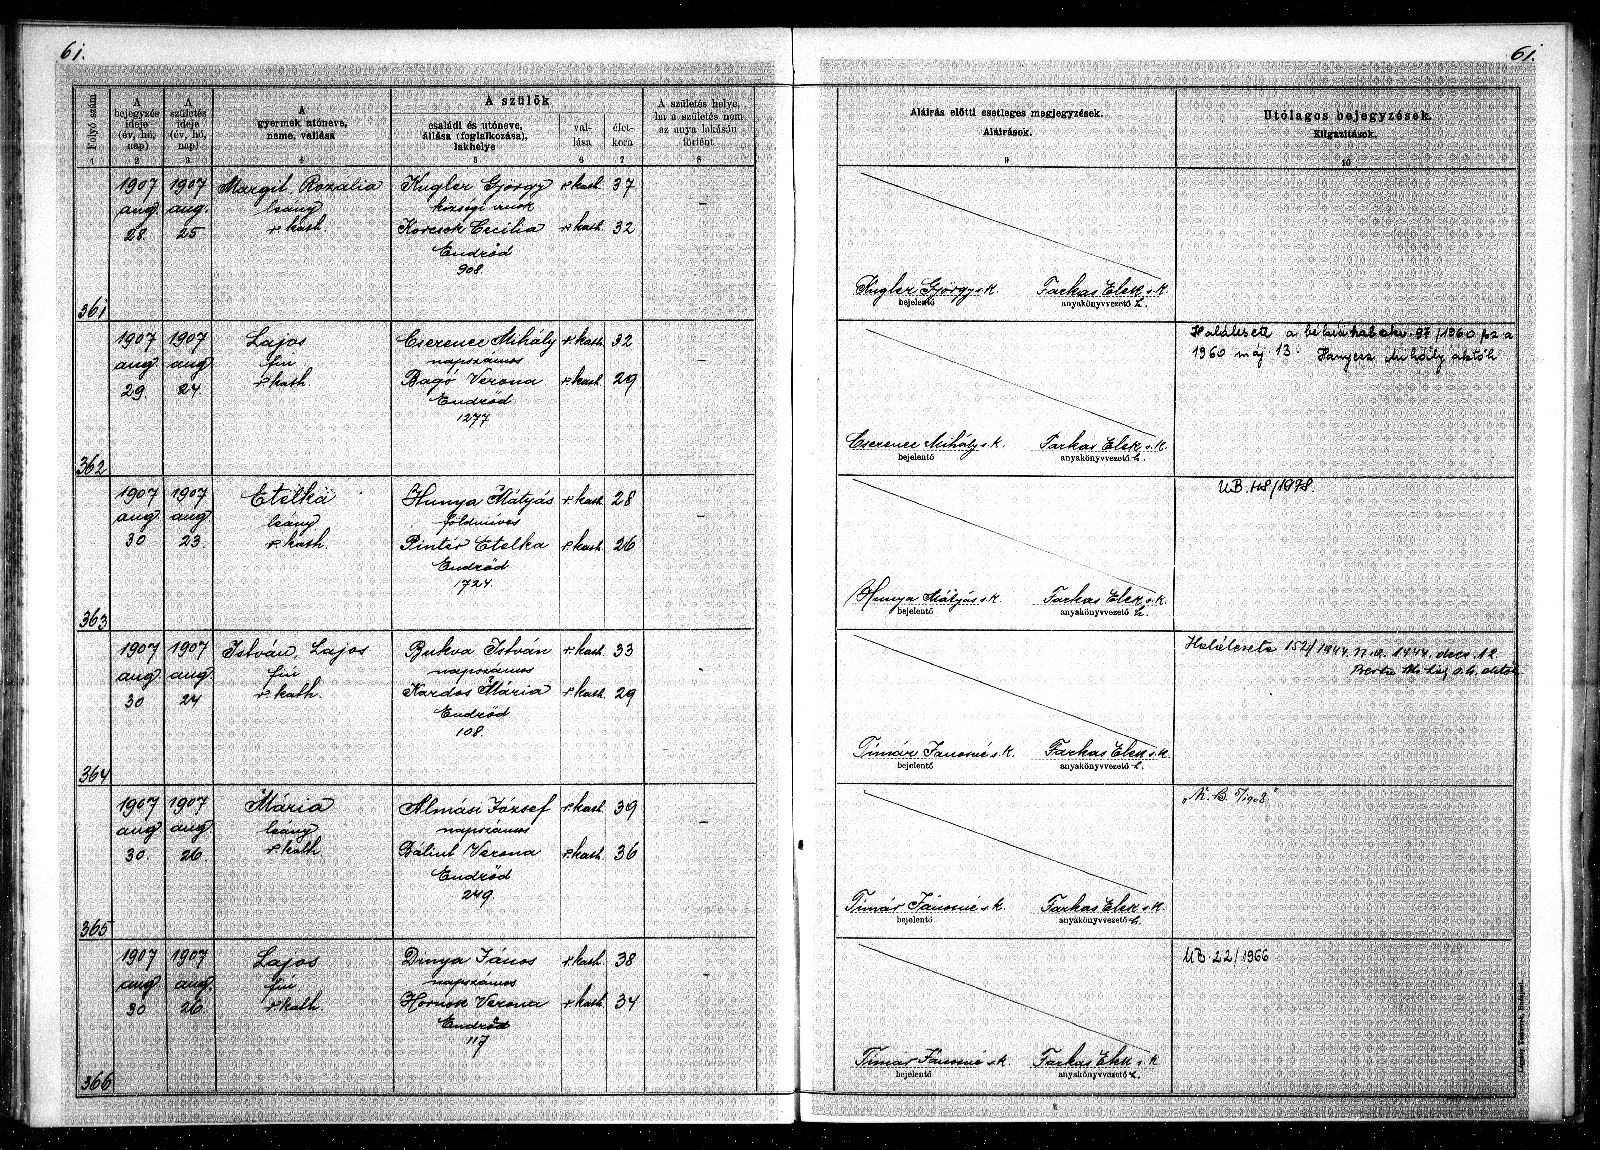 61.
61.
Folyó szám
A bejegyzés ideje (év, hó, nap)
A születés ideje (év, hó, nap)
A gyermek utóneve, neme, vallása
A szülők
családi és utóneve, állása (foglalkozása), lakhelye
vallása
életkora
A születés helye, ha a születés nem az anya lakásán történt.
Aláírás előtti esetleges megjegyzések.
Aláírások.
Utólagos bejegyzések.
Kiigazítások.
1 2 3 4 5 6 7 8 9 10
361
1907 aug. 28.
1907 aug. 25
Margit Rozália
leány
r. kath.
Kugler György r. kath. 37
községi
Korcsok Cecilia r. kath. 32
Endrőd
908
–
Kugler György s. k.
bejelentő
Farkas Elek s. k.
anyakönyvvezető h.
362
1907 aug 29.
1907 aug 24.
Lajos
fiú
r. kath.
Cserence Mihály r. kath. 32
napszámos
Bagó Verona r. kath. 29
Endrőd
1277
–
Cserence Mihály s. k.
bejelentő
Farkas Elek s. k.
anyakönyvvezető h.
1960 máj 13. Mihály
363
1907 aug 30
1907 aug 23.
Etelka
leány
r. kath.
Hunya Mátyás r. kath. 28
földműves
Pintér Etelka r. kath. 26
Endrőd
1724.
–
Hunya Mátyás s. k.
bejelentő
Farkas Elek s. k.
anyakönyvvezető h.
UB. 148/1978.
364
1907 aug 30
1907 aug 24
István Lajos
fiú
r. kath.
Bukva István r. kath. 33
napszámos
Kardos Mária r. kath. 29
Endrőd
108.
–
Timár Jánosné s. k.
bejelentő
Farkas Elek s. k.
anyakönyvvezető h.
152/1944.
365
1907 aug 30
1907 aug. 26
Mária
leány
r. kath.
Almási József r. kath. 39
napszámos
Bálint Verona r. kath. 36
Endrőd
249.
–
Timár Jánosné s. k.
bejelentő
Farkas Elek s. k.
anyakönyvvezető h.
366
1907 aug 30
1907 aug. 26.
Lajos
fiú
r. kath.
Dinya János r. kath. 38
napszámos
Hornok Verona r. kath. 34
Endrőd
117
–
Timár Jánosné s. k.
bejelentő
Farkas Elek s. k.
anyakönyvvezető h.
UB. 22/1966